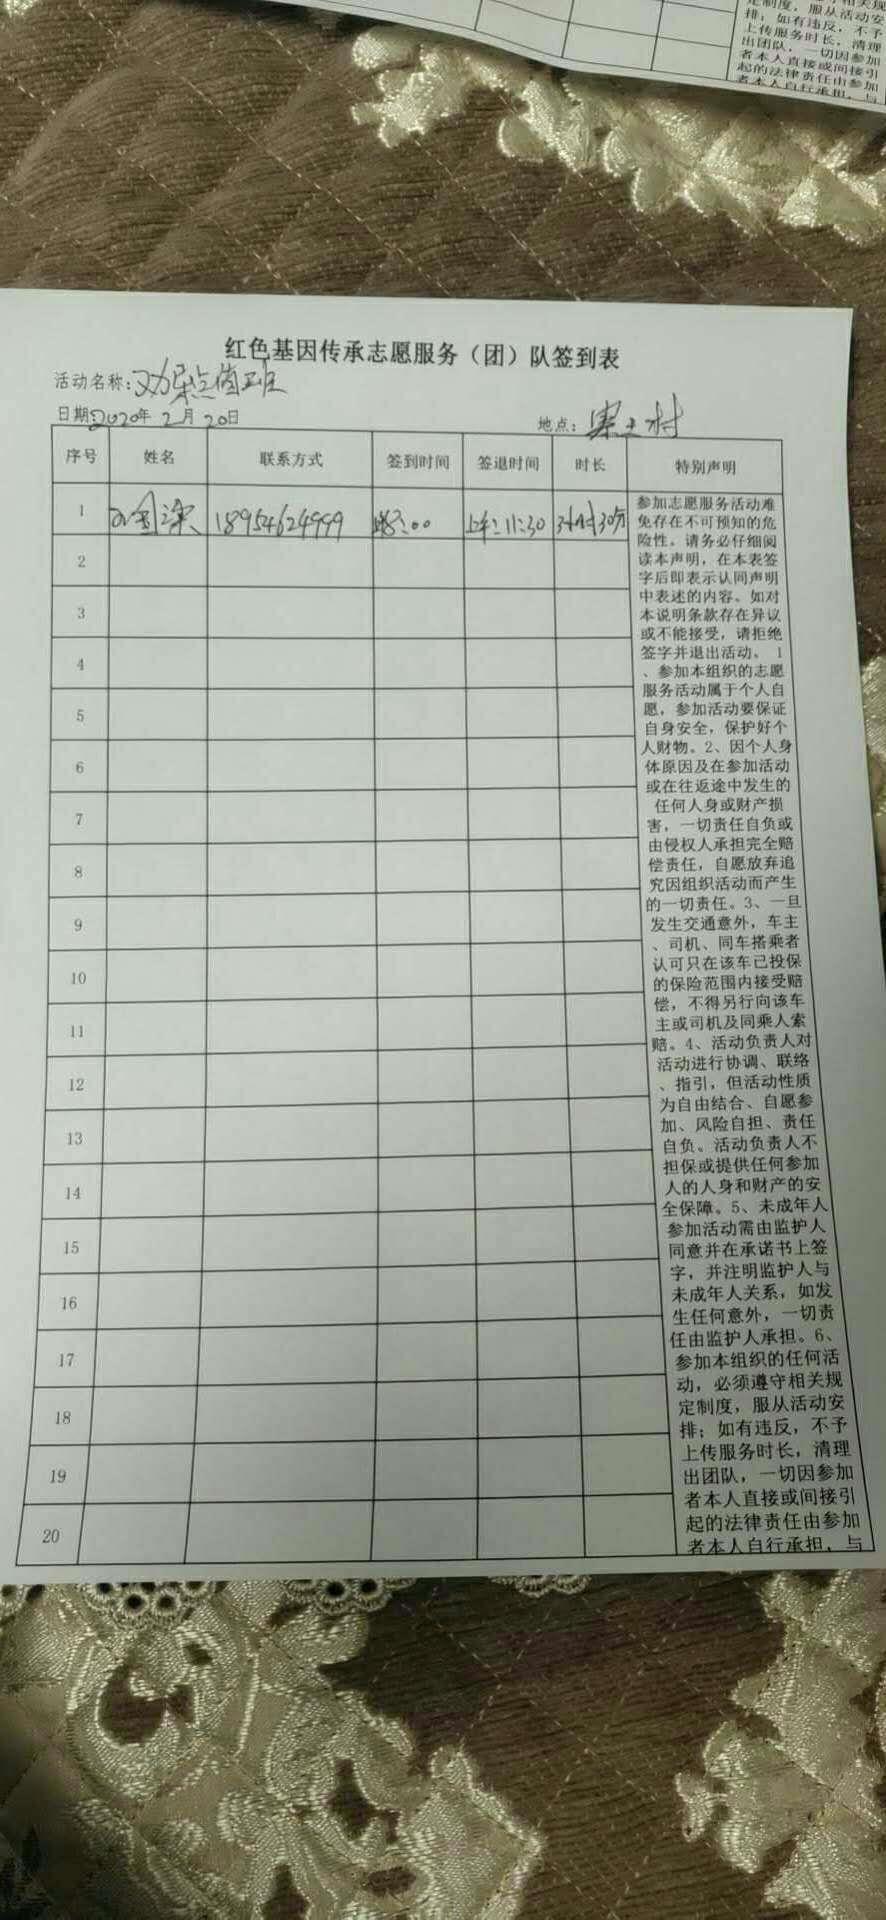 定制度，服从活动安
排；如有违反，不予
上传服务时长，清理
出团队，一切因参加
者本人直接或间接引
起的法律责任由参加
者本人自行承担，与
红色基因传承志愿服务（团）队签到表
活动名称：点值班
日期：2020年2月20日
地点：村
序号 姓名 联系方式 签到时间 签退时间 时长 特别声明
1 18954624999 8:00 上午:11:30 3小时30分
2
3
4
5
6
7
8
9
10
11
12
13
14
15
16
17
18
19
20
参加志愿服务活动难
免存在不可预知的危
险性。请务必仔细阅
读本声明，在本表签
字后即表示认同声明
中表述的内容。如对
本说明条款存在异议
或不能接受，请拒绝
签字并退出活动。 1
、参加本组织的志愿
服务活动属于个人自
愿，参加活动要保证
自身安全，保护好个
人财物。2、因个人身
体原因及在参加活动
或在往返途中发生的
任何人身或财产损
害，一切责任自负或
由侵权人承担完全赔
偿责任，自愿放弃追
究因组织活动而产生
的一切责任。3、一旦
发生交通意外，车主
、司机、同车搭乘者
认可只在该车已投保
的保险范围内接受赔
偿，不得另行向该车
主或司机及同乘人索
赔。4、活动负责人对
活动进行协调、联络
、指引，但活动性质
为自由结合、自愿参
加、风险自担、责任
自负。活动负责人不
担保或提供任何参加
人的人身和财产的安
全保障。5、未成年人
参加活动需由监护人
同意并在承诺书上签
字，并注明监护人与
未成年人关系，如发
生任何意外，一切责
任由监护人承担。6、
参加本组织的任何活
动，必须遵守相关规
定制度，服从活动安
排；如有违反，不予
上传服务时长，清理
出团队，一切因参加
者本人直接或间接引
起的法律责任由参加
者本人自行承担，与